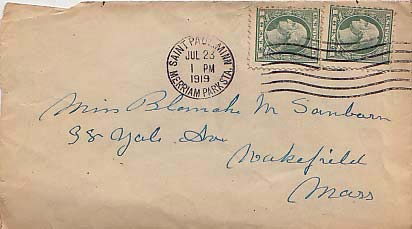 SAINT PAUL, MINN.
JUL 23
1 PM
1919
MERRIAM PARK STA.
Miss Blanche M Sanborn
38 Yale Ave
Wakefield
Mass